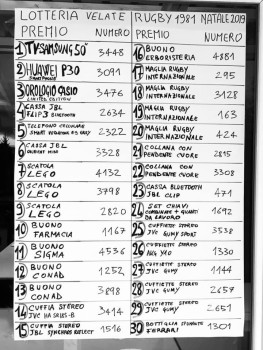 LOTTERIA VELATE RUGBY 1981 NATALE 2019
PREMIO NUMERO
1 TV SAMSUNG 50" 3448
2 HUAWEI P30 3091
3 OROLOGIO CASIO 3476
LIMITED EDITION
4 CASSA JBL 2634
FLIP3 BLUETOOTH
5 TELEFONO CELLULARE 2322
6 CASSA JBL 3328
7 SCATOLA 4132
LEGO
8 SCATOLA 3798
LEGO
9 SCATOLA 2820
LEGO
10 BUONO 1167
FARMACIA
11 BUONO 4536
SIGMA
12 BUONO 1252
CONAD
13 BUONO 3898
CONAD
14 CUFFIA STEREO 3414
15 CUFFIA STEREO 1516
JBL SYNCHROS REFLECT
PREMIO NUMERO
16 BUONO 4881
ERBORISTERIA
17 MAGLIA RUGBY 295
INTERNAZIONALE
18 MAGLIA RUGBY 3128
INTERNAZIONALE
19 MAGLIA RUGBY 163
INTERNAZIONALE
20 MAGLIA RUGBY 424
INTERNAZIONALE
21 COLLANA CON 2815
PENDENTE CUORE
22 COLLANA CON 3308
PENDENTE CUORE
23 CASSA BLUETOOTH 471
JBL CLIP
24 SET CHIAVI 1692
COMBINATE + GUANTI
DA LAVORO
25 CUFFIETTE STEREO 3538
JVC GUMY SPORT
26 CUFFIETTE STEREO 1330
27 CUFFIETTE STEREO 1144
JVC GUMY
28 CUFFIETTE STEREO 2657
JVC GUMY
29 CUFFIETTE STEREO 2651
JVC GUMY
30 BOTTIGLIA SPUMANTE 1301
FERRARI